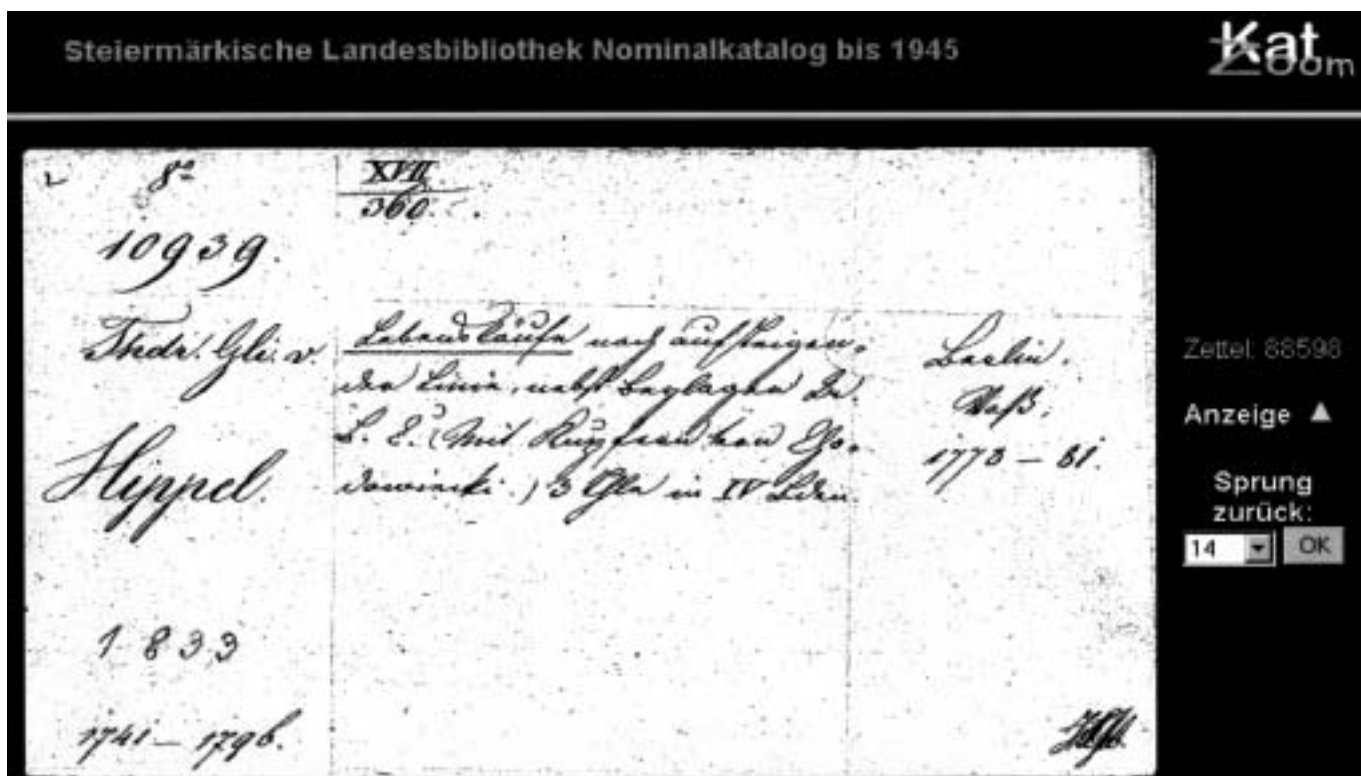 Steiermärkische Landesbibliothek Nominalkatalog bis 1945
KatZoom
8°
XVII
360.
10939.
Thdr. Gli. v.
Hippel.
Lebensläufe nach aufsteigen-
der Linie, nebst Beylagen A.
B. C. (Mit Kupfern von Cho-
dowiecki.) 3 Thle in IV Bden.
Berlin.
Voß.
1778 – 81.
1833
1741 – 1796.
Zettel: 88598
Anzeige
Sprung
zurück:
14
OK